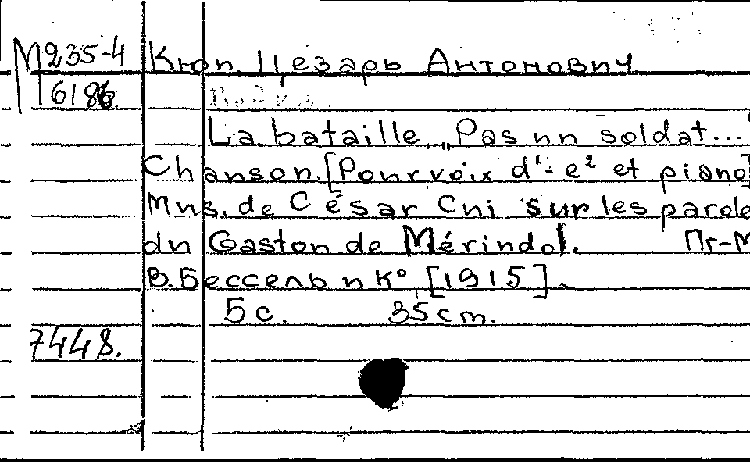 М235-4 Кюи. Цезарь Антонович
6186.
La bataille „Pas un soldat...
Chanson. [Pour voix d'1-e2 et piano]
Mus. de César Cui sur les parole
du Gaston de Mérindol. Пг-М
В. Бессель и К° [1915].
5 с. 35 cm.
7448.